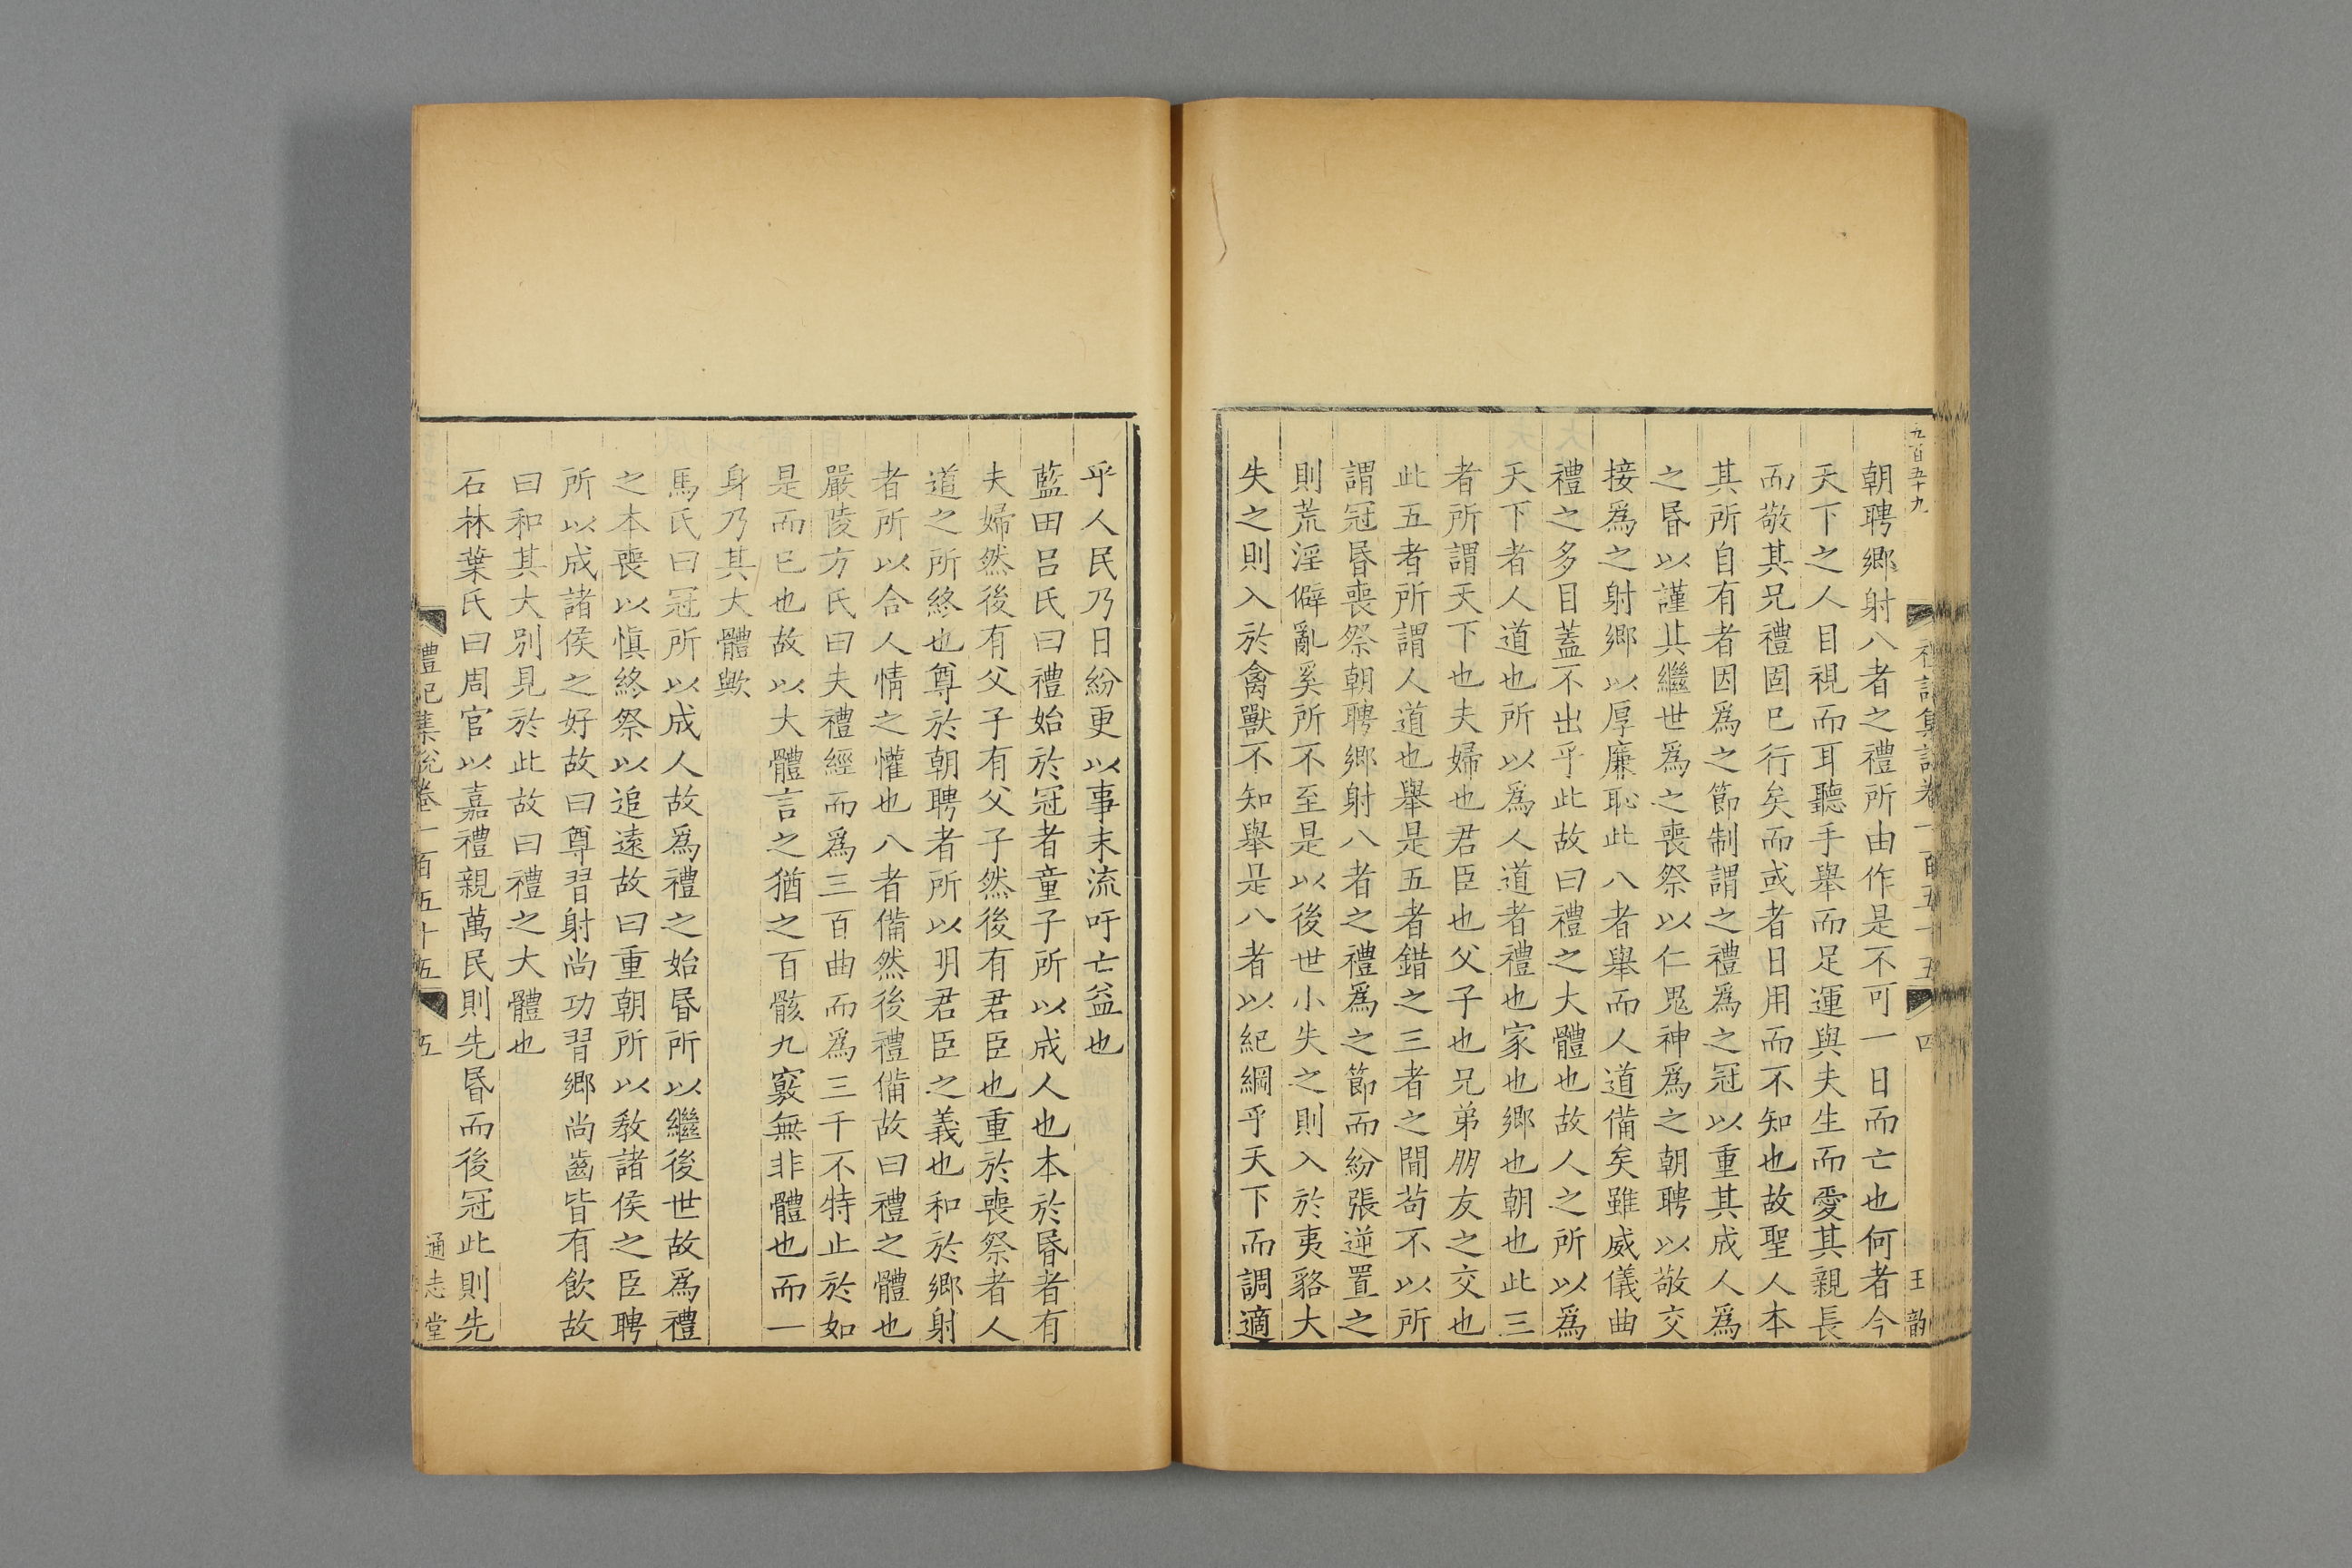 五百五十九
禮記集說卷一百五十五
四
王韵
朝聘鄉射八者之禮所由作是不可一日而亡也何者今
天下之人目視而耳聽手舉而足運與夫生而愛其親長
而敬其兄禮固已行矣而或者日用而不知也故聖人本
其所自有者因爲之節制謂之禮爲之冠以重其成人爲
之昏以謹其繼世爲之喪祭以仁鬼神爲之朝聘以敬交
接爲之射鄉以厚廉恥此八者舉而人道備矣雖威儀曲
禮之多目蓋不出乎此故曰禮之大體也故人之所以爲
天下者人道也所以爲人道者禮也家也鄉也朝也此三
者所謂天下也夫婦也君臣也父子也兄弟朋友之交也
此五者所謂人道也舉是五者錯之三者之閒苟不以所
謂冠昏喪祭朝聘鄉射八者之禮爲之節而紛張逆置之
則荒淫僻亂奚所不至是以後世小失之則入於夷貉大
失之則入於禽獸不知舉是八者以紀綱乎天下而調適
乎人民乃日紛更以事末流吁亡益也
藍田呂氏曰禮始於冠者童子所以成人也本於昏者有
夫婦然後有父子有父子然後有君臣也重於喪祭者人
道之所終也尊於朝聘者所以明君臣之義也和於鄉射
者所以合人情之懽也八者備然後禮備故曰禮之體也
嚴陵方氏曰夫禮經而爲三百曲而爲三千不特止於如
是而已也故以大體言之猶之百骸九竅無非體也而一
身乃其大體歟
馬氏曰冠所以成人故爲禮之始昏所以繼後世故爲禮
之本喪以愼終祭以追遠故曰重朝所以教諸侯之臣聘
所以成諸侯之好故曰尊習射尚功習鄉尚齒皆有飲故
曰和其大別見於此故曰禮之大體也
石林葉氏曰周官以嘉禮親萬民則先昏而後冠此則先
禮記集說卷一百五十五
五
通志堂